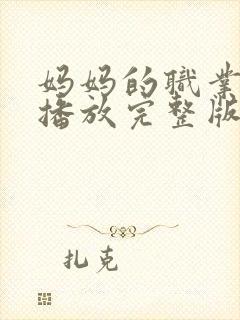 妈妈的职业
播放完整版
扎克